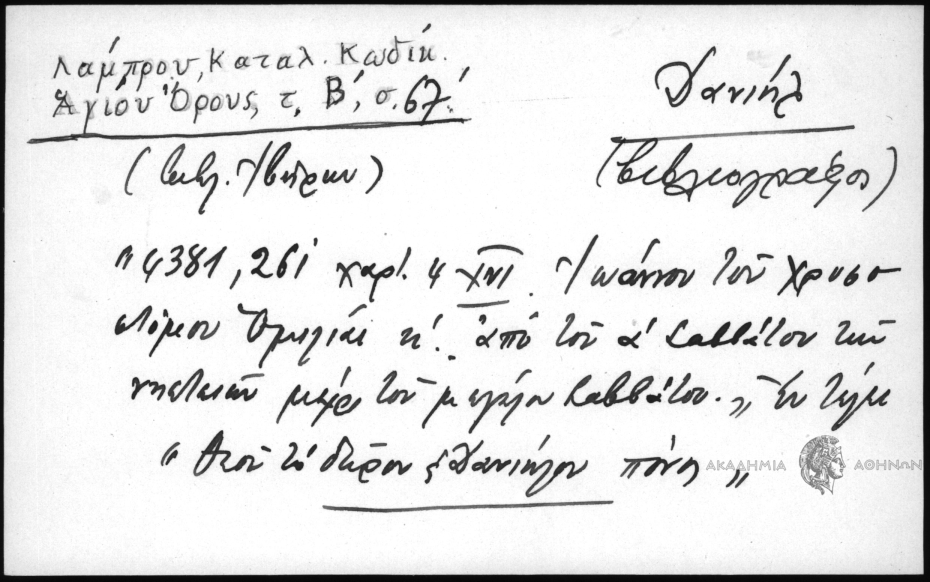 Λάμπρου, Καταλ. Κωδίκ.
Ἁγίου Ὄρους, τ, Β΄, σ. 67.
Δανιήλ
(βιβλ. Ἰβήρων)
(βιβλιογράφος)
"4381, 261 χαρτ. 4 XVI. Ἰωάννου τοῦ Χρυσο-
στόμου Ὁμιλίαι κ΄. ἀπὸ τοῦ α΄ Σαββάτου τῶν
νηστειῶν μέχρι τοῦ μεγάλου Σαββάτου. „ Ἐν τέλει
" Θεοῦ τὸ δῶρον ἐ Δανιήλου πόνος „
ΑΚΑΔΗΜΙΑ ΑΘΗΝΩΝ